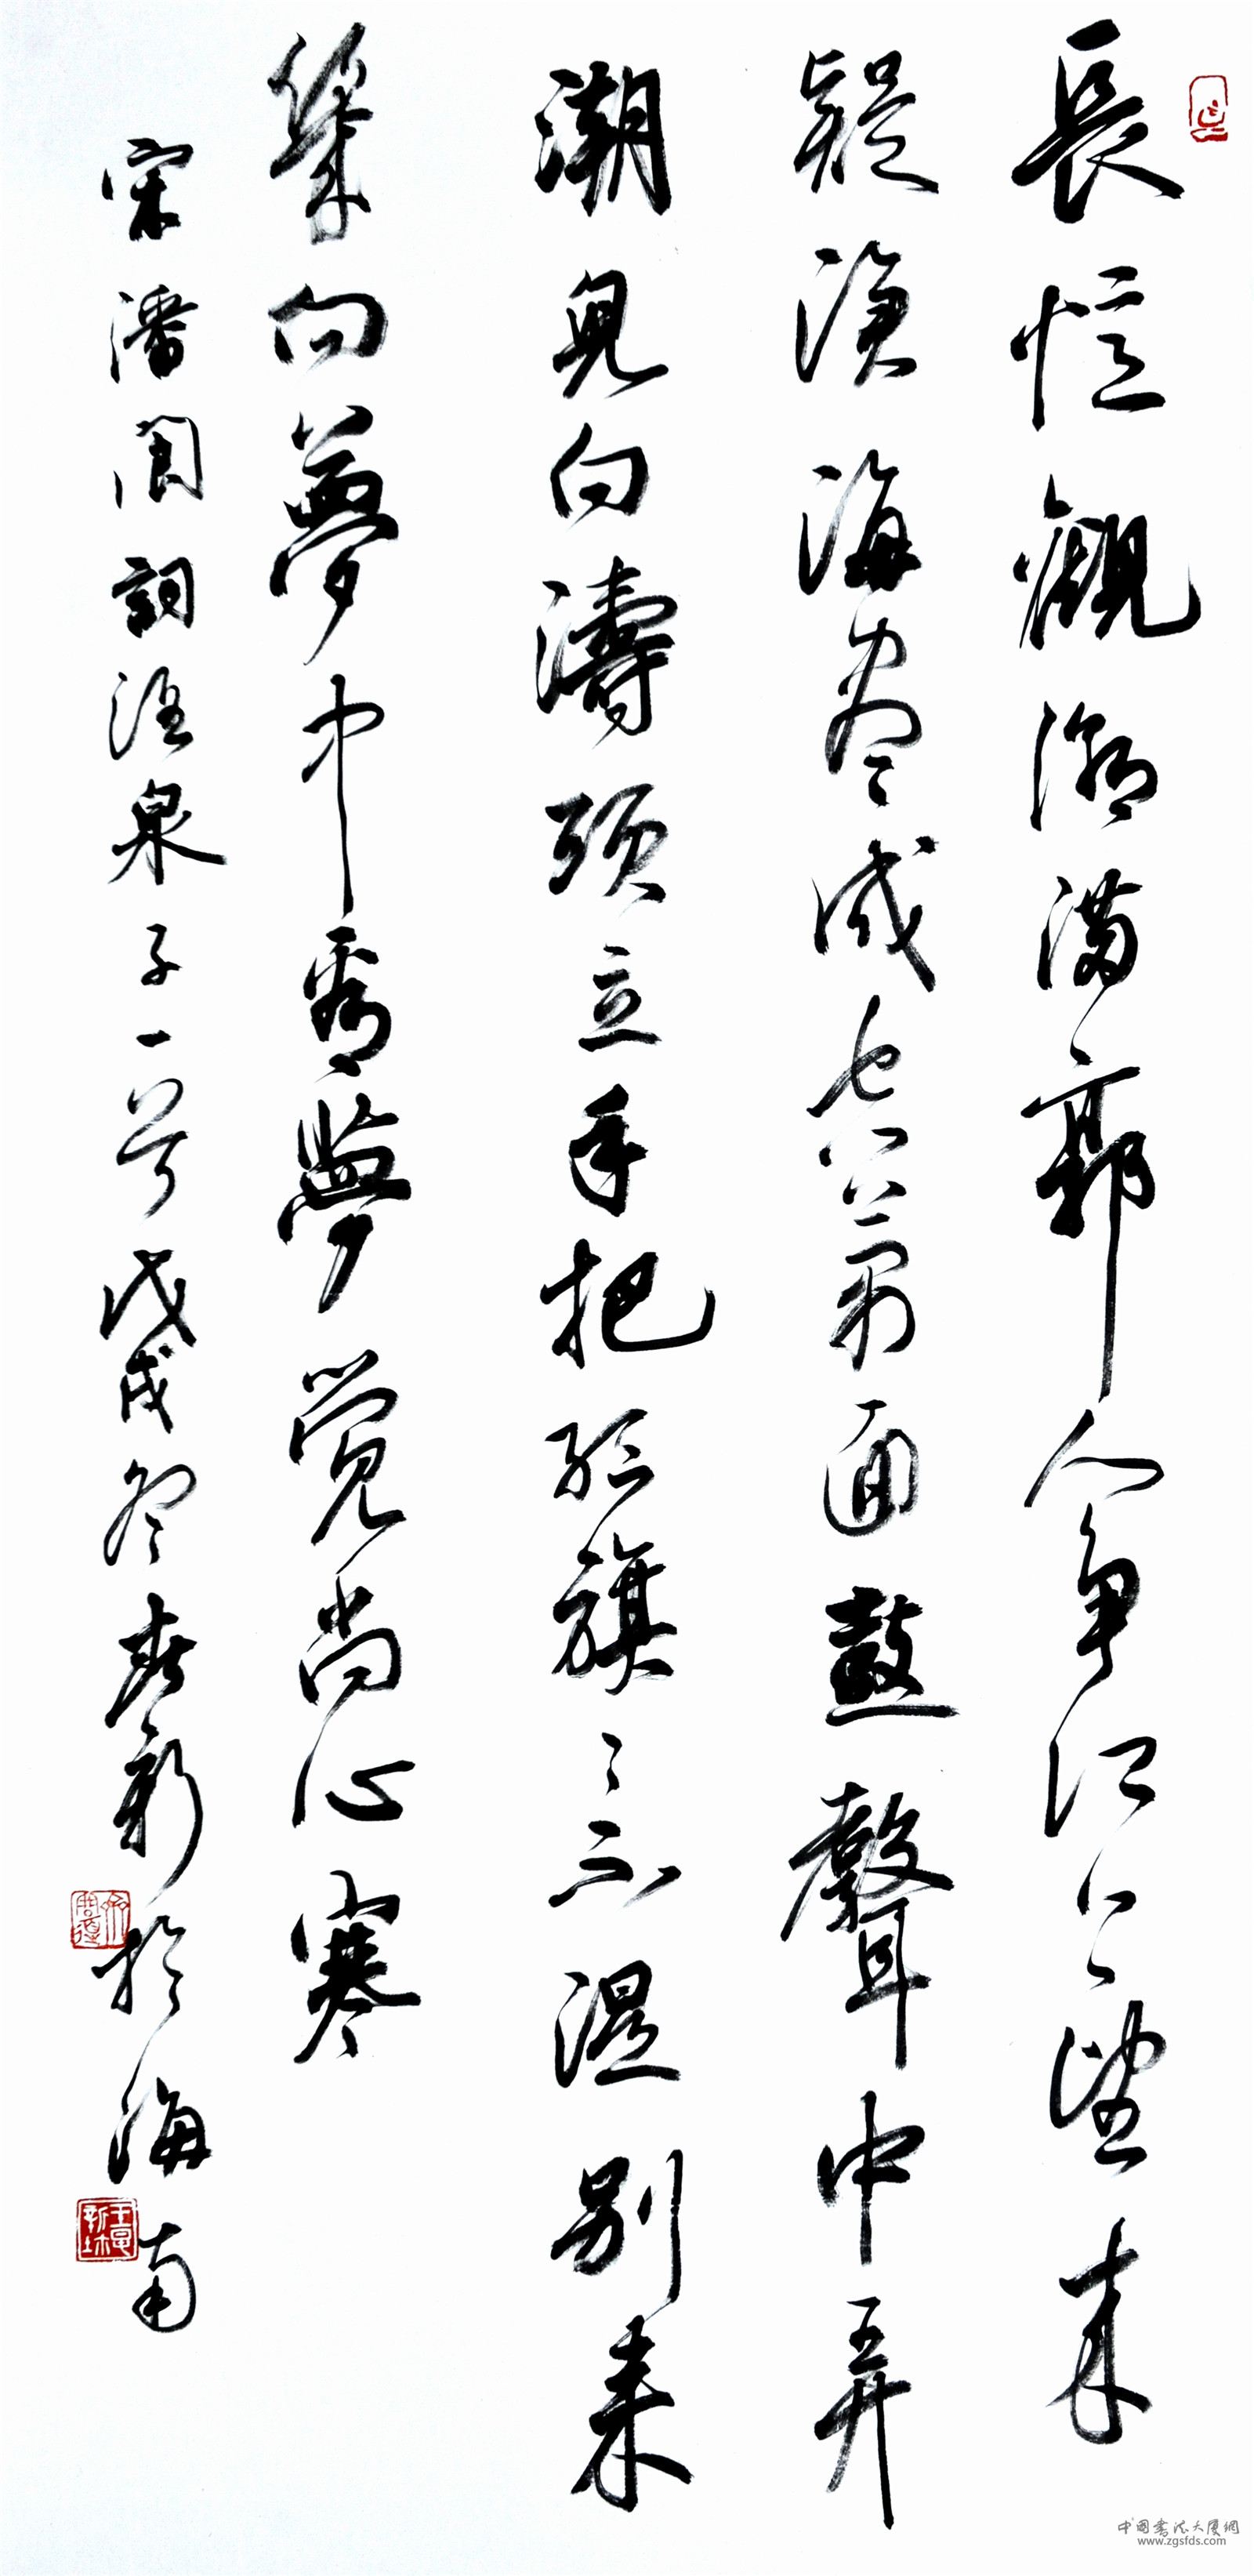 長憶觀潮滿郭人争江上望來
疑滄海尽成空萬面鼓聲中弄
潮兒向濤頭立手把紅旗々不濕別來
幾向夢中看夢覺尚心寒
宋潘閬詞酒泉子一首戊戌冬新於海南
中國書法大厦網
www.zgsfds.com